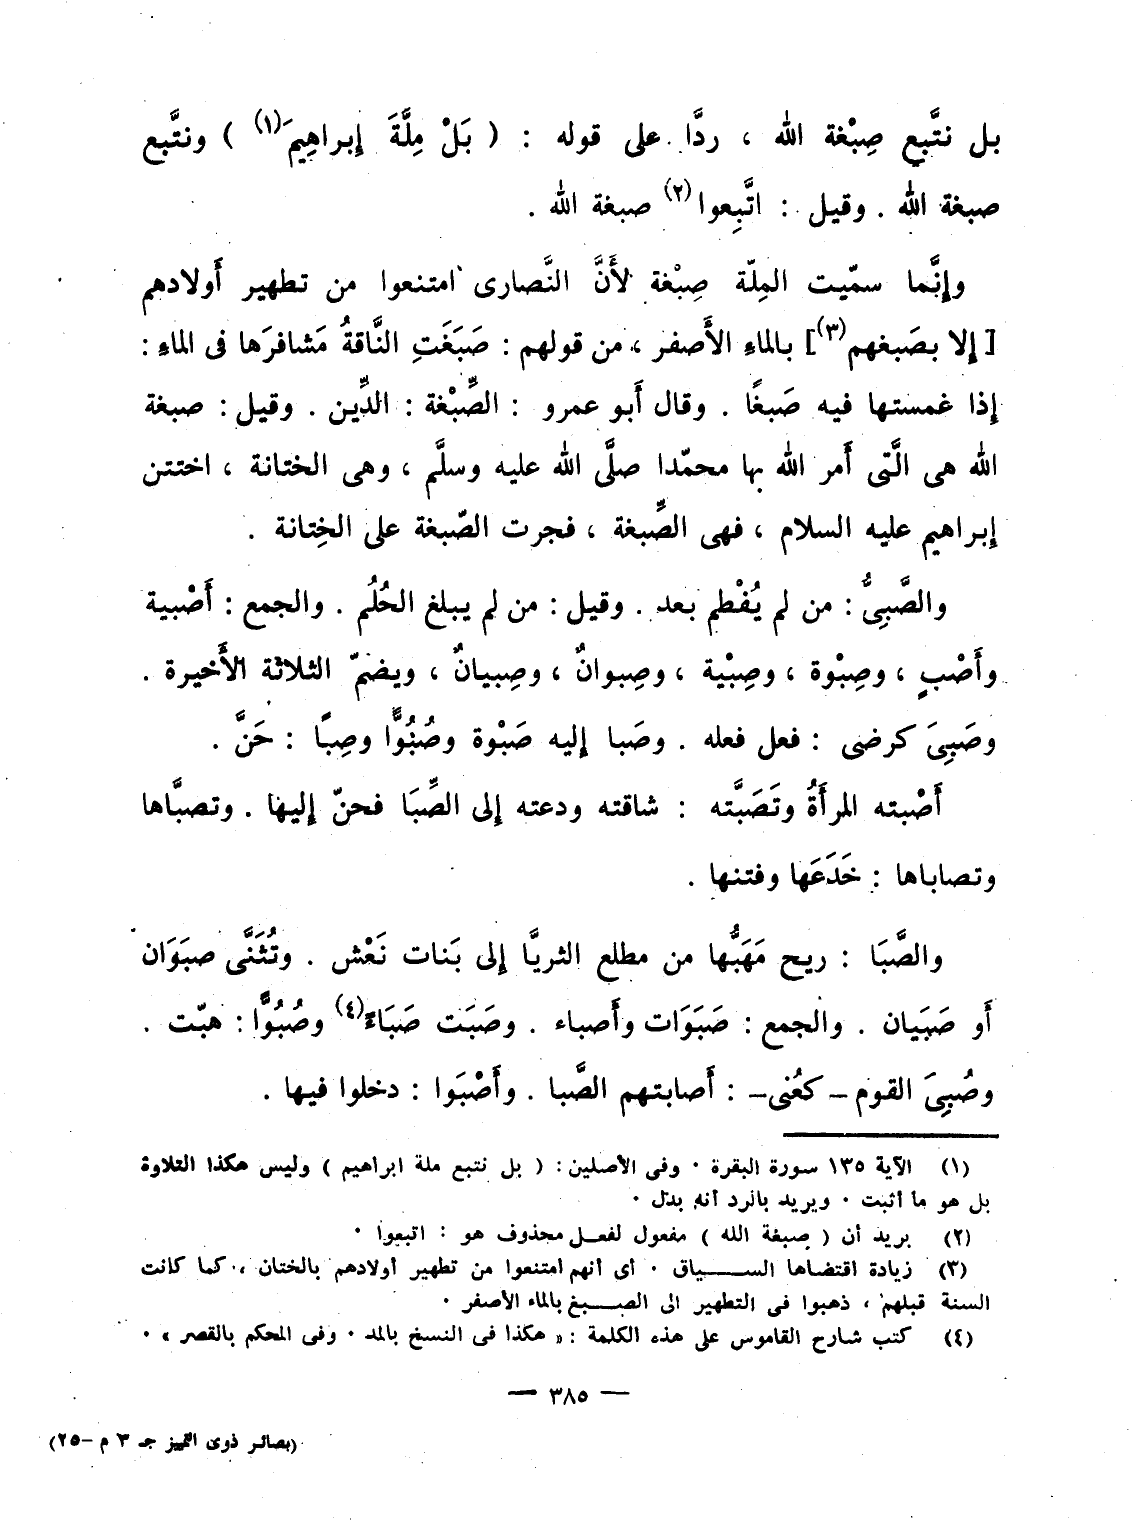 بل نتَّبع صِبْغة الله ، ردًّا على قوله : ( بَلْ مِلَّةَ إِبراهِيمَ(١) ) ونتَّبع
صبغة الله . وقيل : اتَّبِعوا(٢) صبغة الله .
وإِنَّما سمّيت المِلّة صِبْغة لأَنَّ النَّصارى امتنعوا من تطهير أَولادهم
[ إِلا بصَبغهم(٣)] بالماءِ الأَصفر ، من قولهم : صَبَغَتِ النَّاقةُ مَشافرَها فى الماءِ :
إِذا غمستها فيه صَبغًا . وقال أَبو عمرو : الصِّبْغة : الدِّين . وقيل : صبغة
الله هى الَّتى أَمر الله بها محمّدا صلَّى الله عليه وسلَّم ، وهى الختانة ، اختتن
إِبراهيم عليه السلام ، فهى الصِّبغة ، فجرت الصّبغة على الخِتانة .
والصَّبِىُّ : من لم يُفْطم بعد . وقيل : من لم يبلغ الحُلُم . والجمع : أَصْبية
وأَصْبٍ ، وصِبْوة ، وصِبْية ، وصِبوانٌ ، وصِبيانٌ ، ويضمّ الثلاثة الأَخيرة .
وصَبِىَ كرضى : فعل فعله . وصَبا إِليه صَبْوة وصُبُوًّا وصِبًا : حَنَّ .
أَصْبته المرأَةُ وتَصَبَّته : شاقته ودعته إِلى الصِّبَا فحنّ إِليها . وتصبَّاها
وتصاباها : خَدَعَها وفتنها .
والصَّبَا : ريح مَهَبُّها من مطلع الثريَّا إِلى بَنات نَعْش . وتُثَنَّى صبَوَان
أَو صَبَيان . والجمع : صَبَوَات وأَصباء . وصَبَت صَبَاءً(٤) وصُبُوًّا : هبّت .
وصُبِىَ القوم – كعُنى– : أَصابتهم الصَّبا . وأَصْبَوا : دخلوا فيها .
(١) الآية ١٣٥ سورة البقرة . وفى الأصلين : ( بل نتبع ملة ابراهيم ) وليس هكذا التلاوة
بل هو ما أثبت . ويريد بالرد أنه بدل .
(٢) يريد أن ( صبغة الله ) مفعول لفعل محذوف هو : اتبعوا .
(٣) زيادة اقتضاها السياق . أى أنهم امتنعوا من تطهير أولادهم بالختان ، كما كانت
السنة قبلهم ، ذهبوا فى التطهير الى الصبغ بالماء الأصفر .
(٤) كتب شارح القاموس على هذه الكلمة : « هكذا فى النسخ بالمد . وفى المحكم بالقصر » .
— ٣٨٥ —
(بصائر ذوى التمييز جـ ٣ م –٢٥)